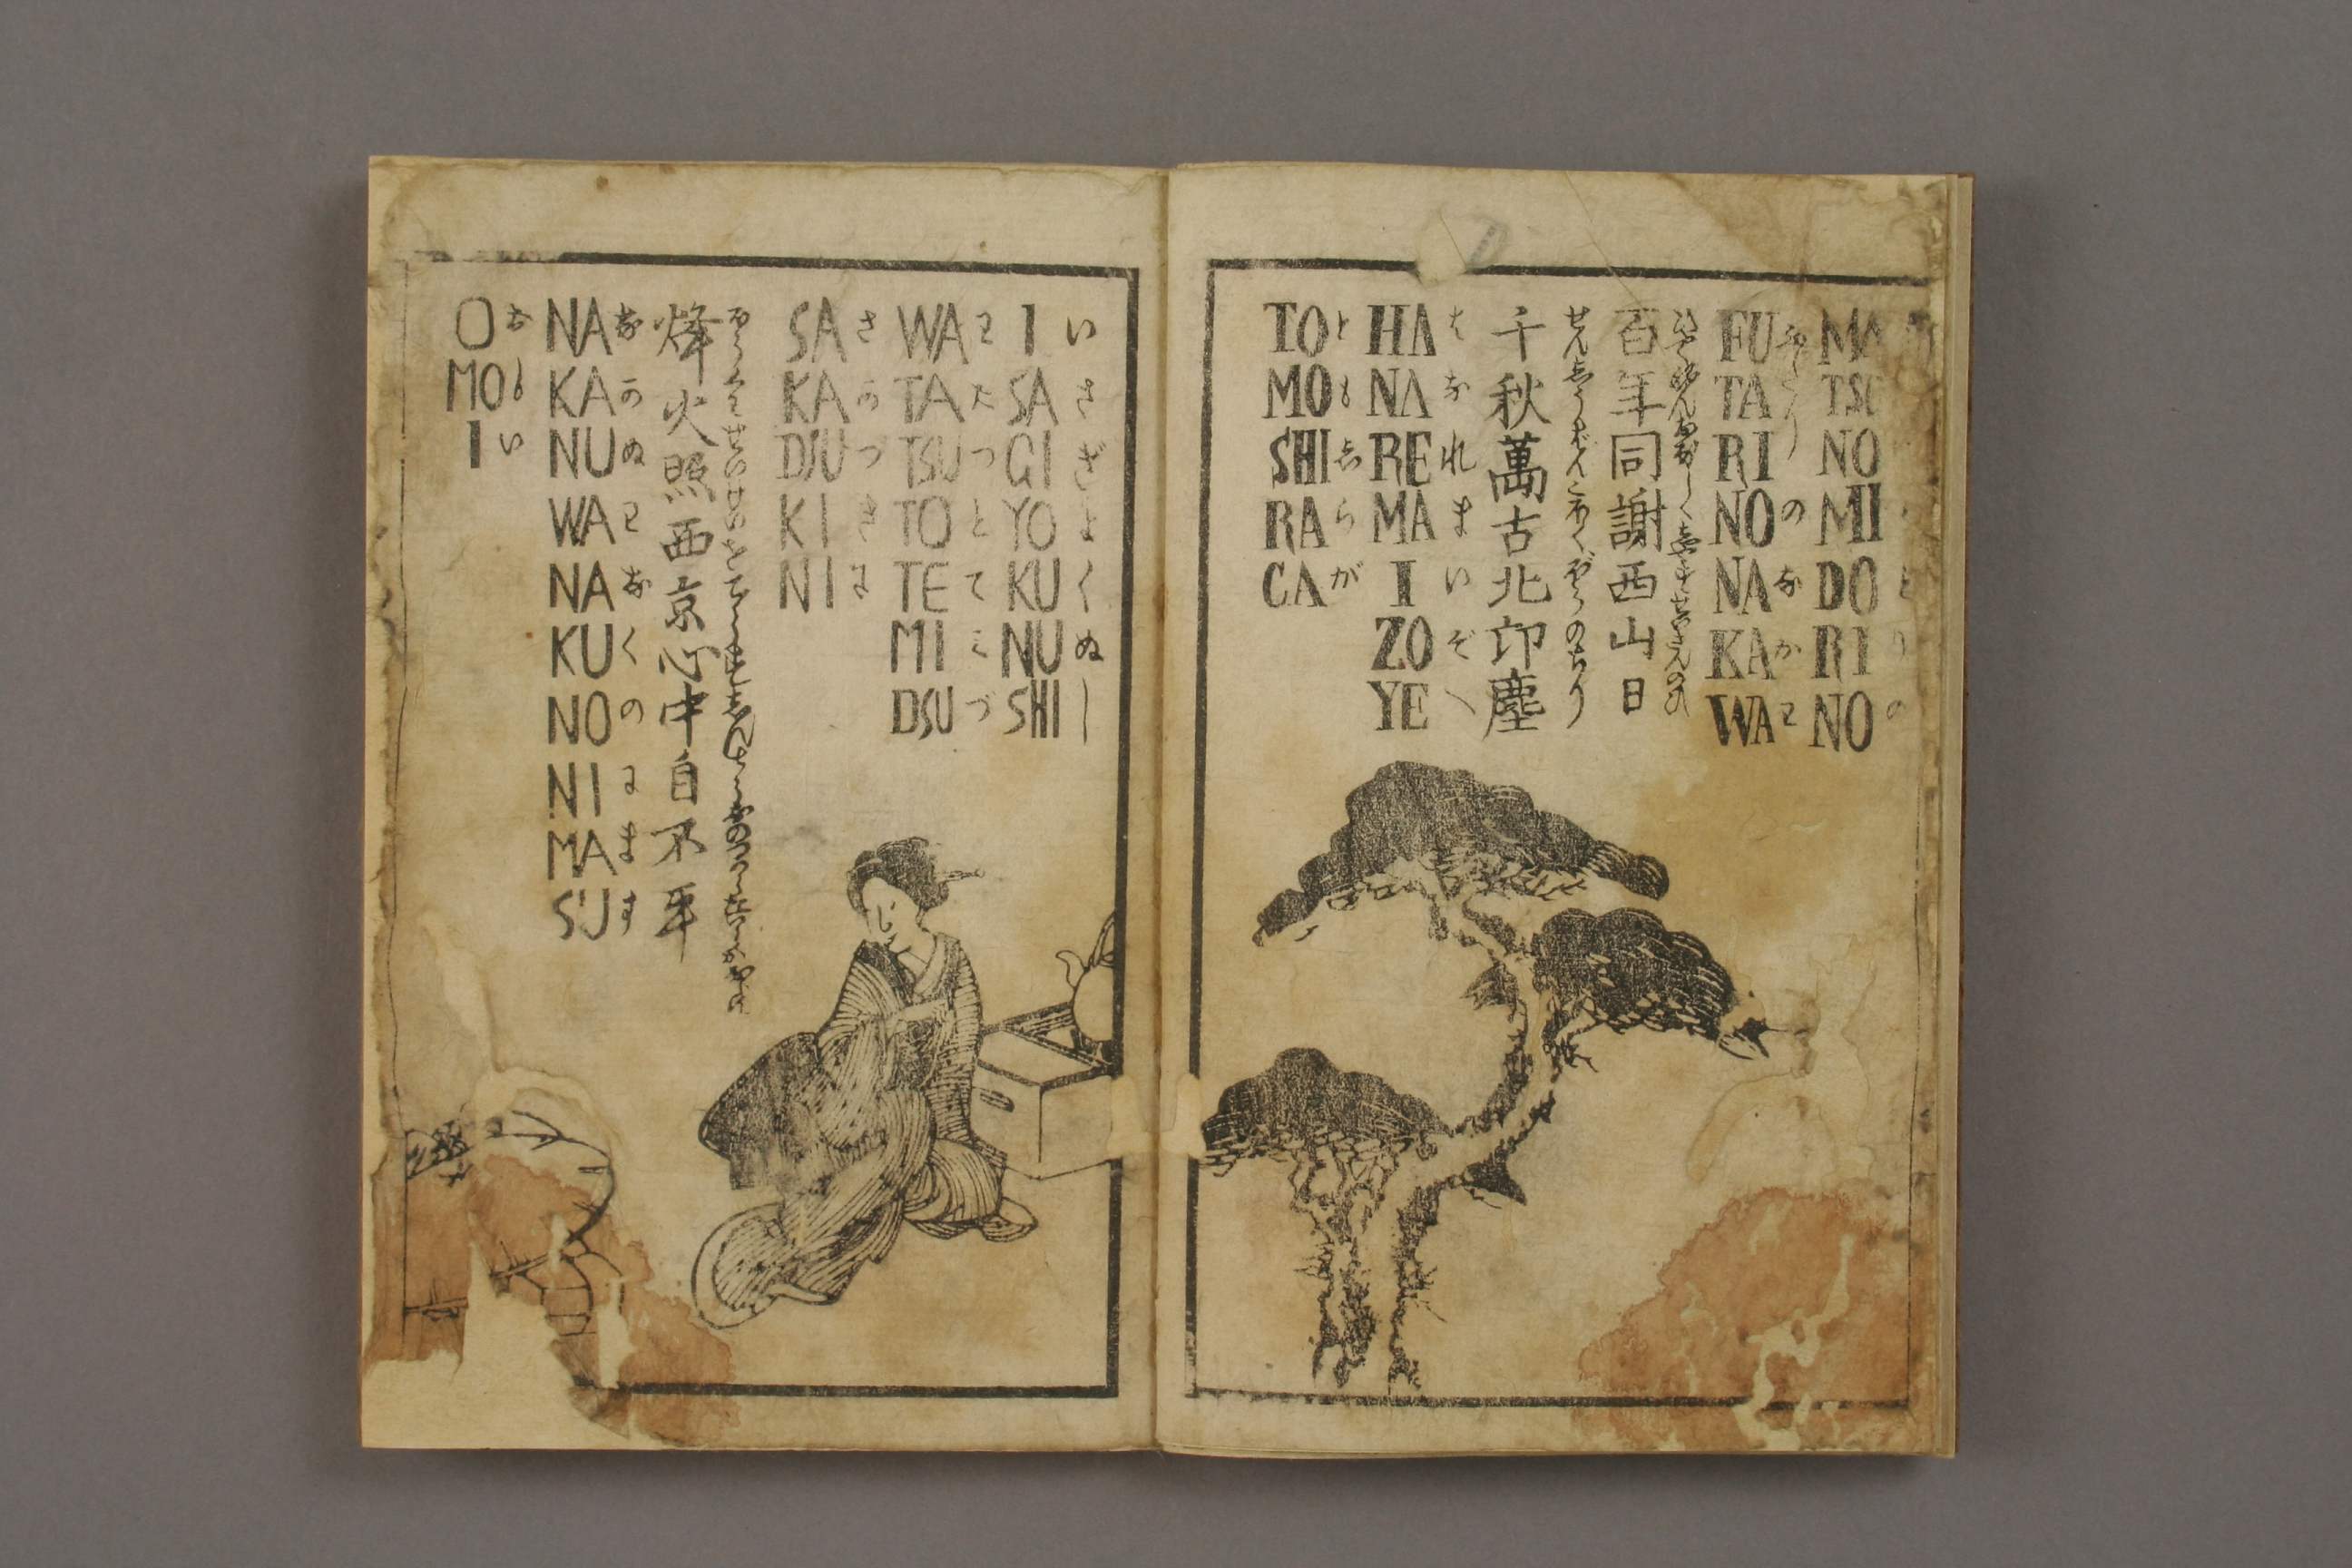 MA TSU NO MI DO RI NO
ふたりのなかわ
FU TA RI NO NA KA WA
百年同謝西山日
せんしうばんこほくばうのちり
千秋萬古北邙塵
はなれまいぞへ
HA NA RE MA I ZO YE
ともしらが
TO MO SHI RA CA
いさぎよくぬし
I SA GI YO KU NU SHI
わたつとてみづ
WA TA TSU TO TE MI DSU
さかづきに
SA KA DSU KI NI
烽火照西京心中自不平
なかぬわなくのにます
NA KA NU WA NA KU NO NI MA SU
おもい
O MO I